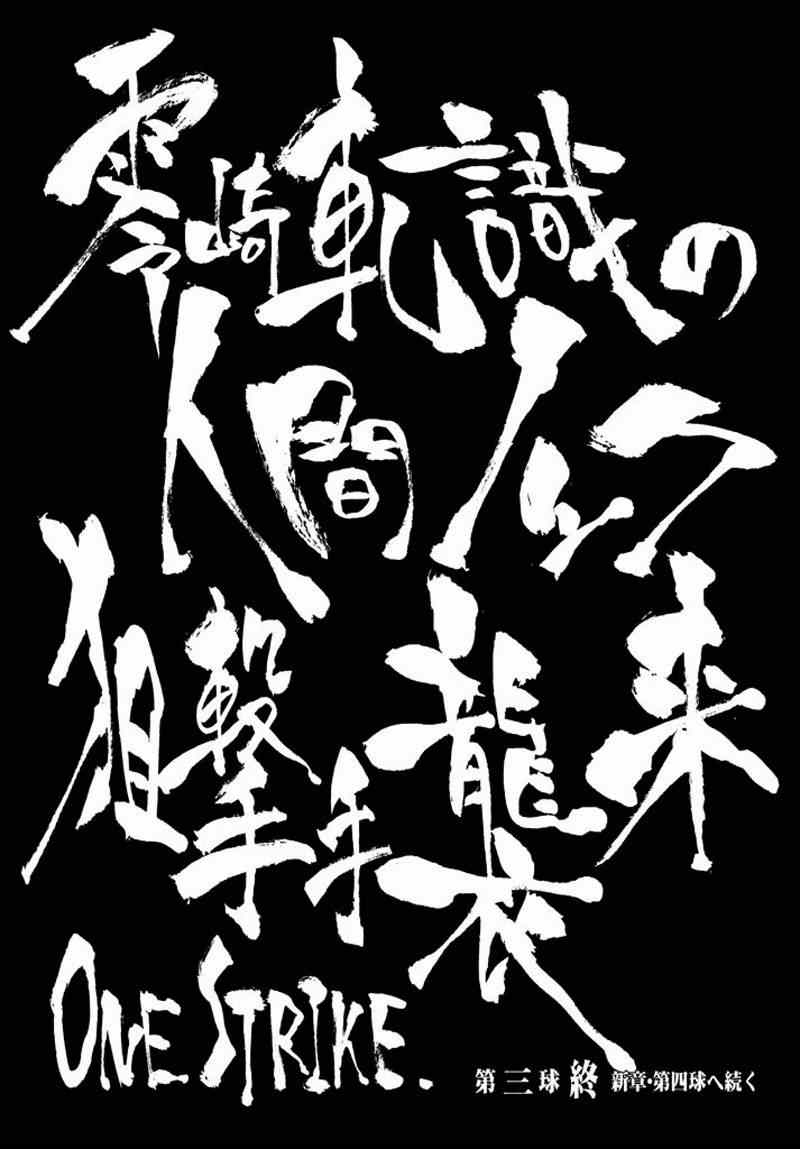 零崎軋識の
人間ノック
狙撃手襲来
ONE STRIKE.
第三球 終 新章・第四球へ続く